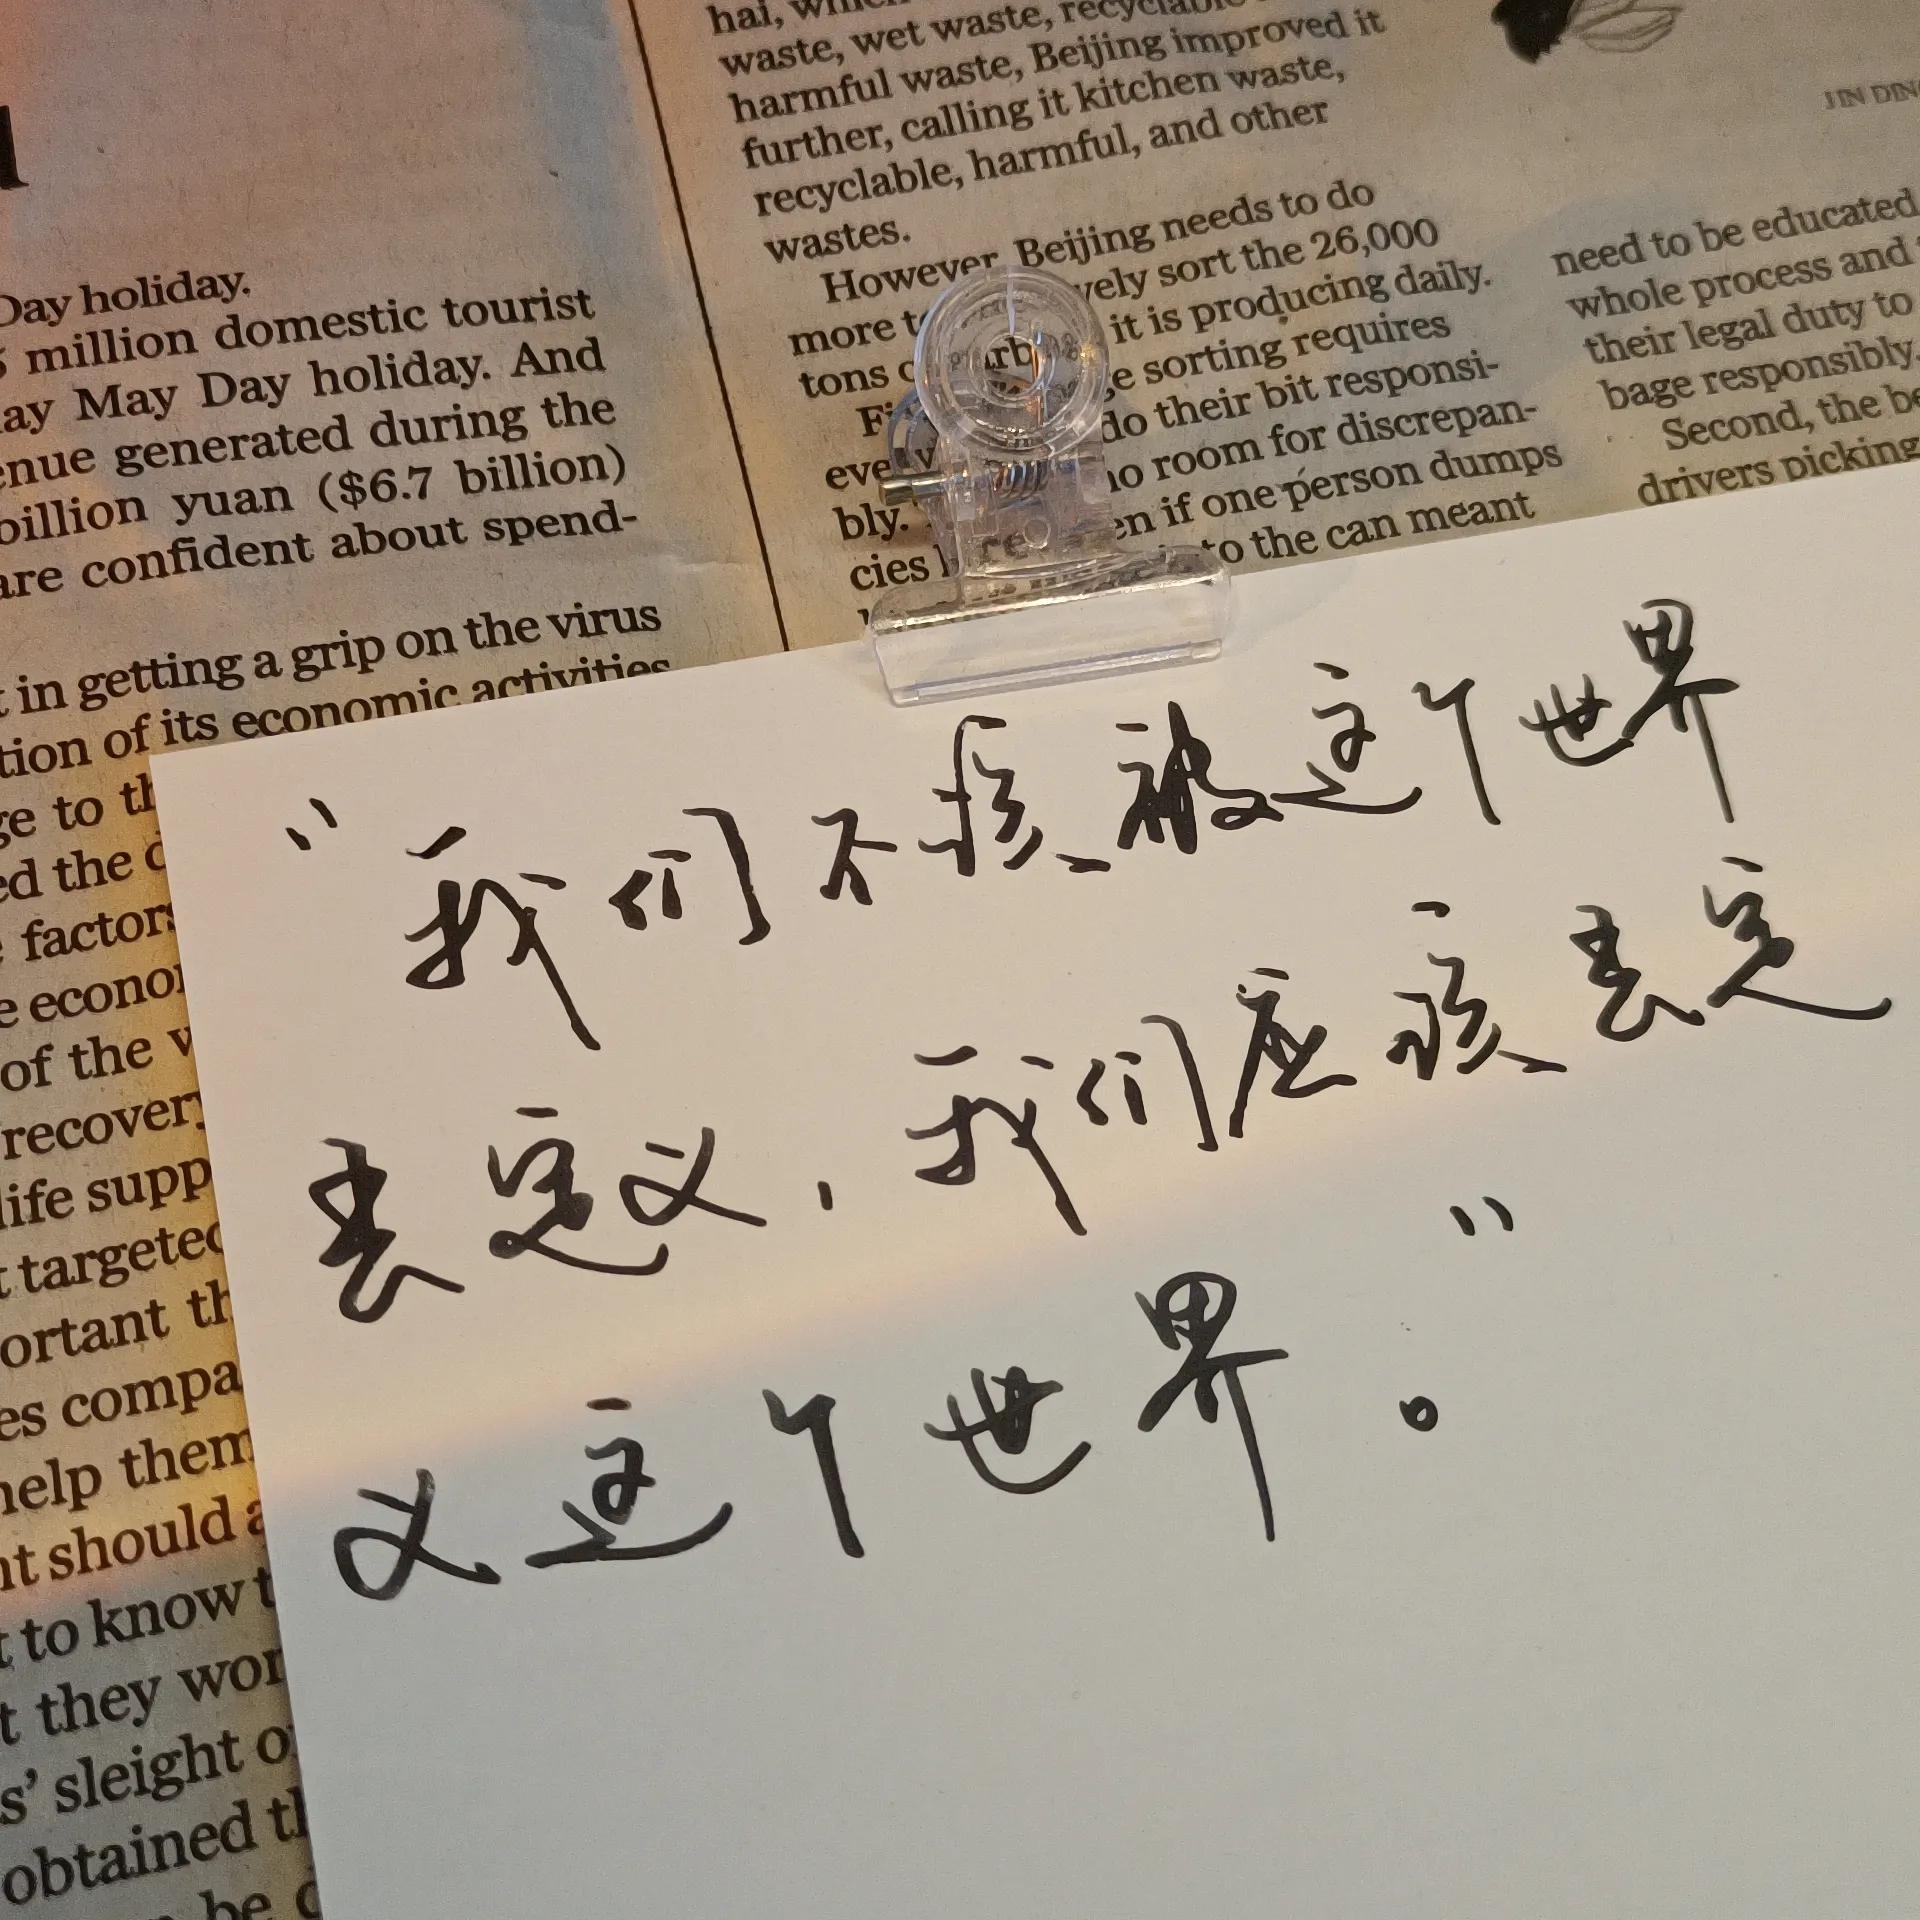 hai, which
waste, wet waste, recyclable
harmful waste, Beijing improved it
further, calling it kitchen waste,
recyclable, harmful, and other
wastes.
However, Beijing needs to do
more vely sort the 26,000
tons it is producing daily.
sorting requires
do their bit responsi-
bly. no room for discrepan-
cies if one person dumps
to the can meant
JIN DING
need to be educated
whole process and
their legal duty to
bage responsibly.
Second, the be
drivers picking
Day holiday.
5 million domestic tourist
ay May Day holiday. And
enue generated during the
billion yuan ($6.7 billion)
are confident about spend-
in getting a grip on the virus
tion of its economic activities
ge to th
ed the
factors
e econo
of the
recovery
life supp
targeted
ortant th
es compa
help them
nt should a
t to know t
t they wor
s' sleight o
obtained th
be
“我们不该被这个世界
去定义，我们应该去定
义这个世界。”